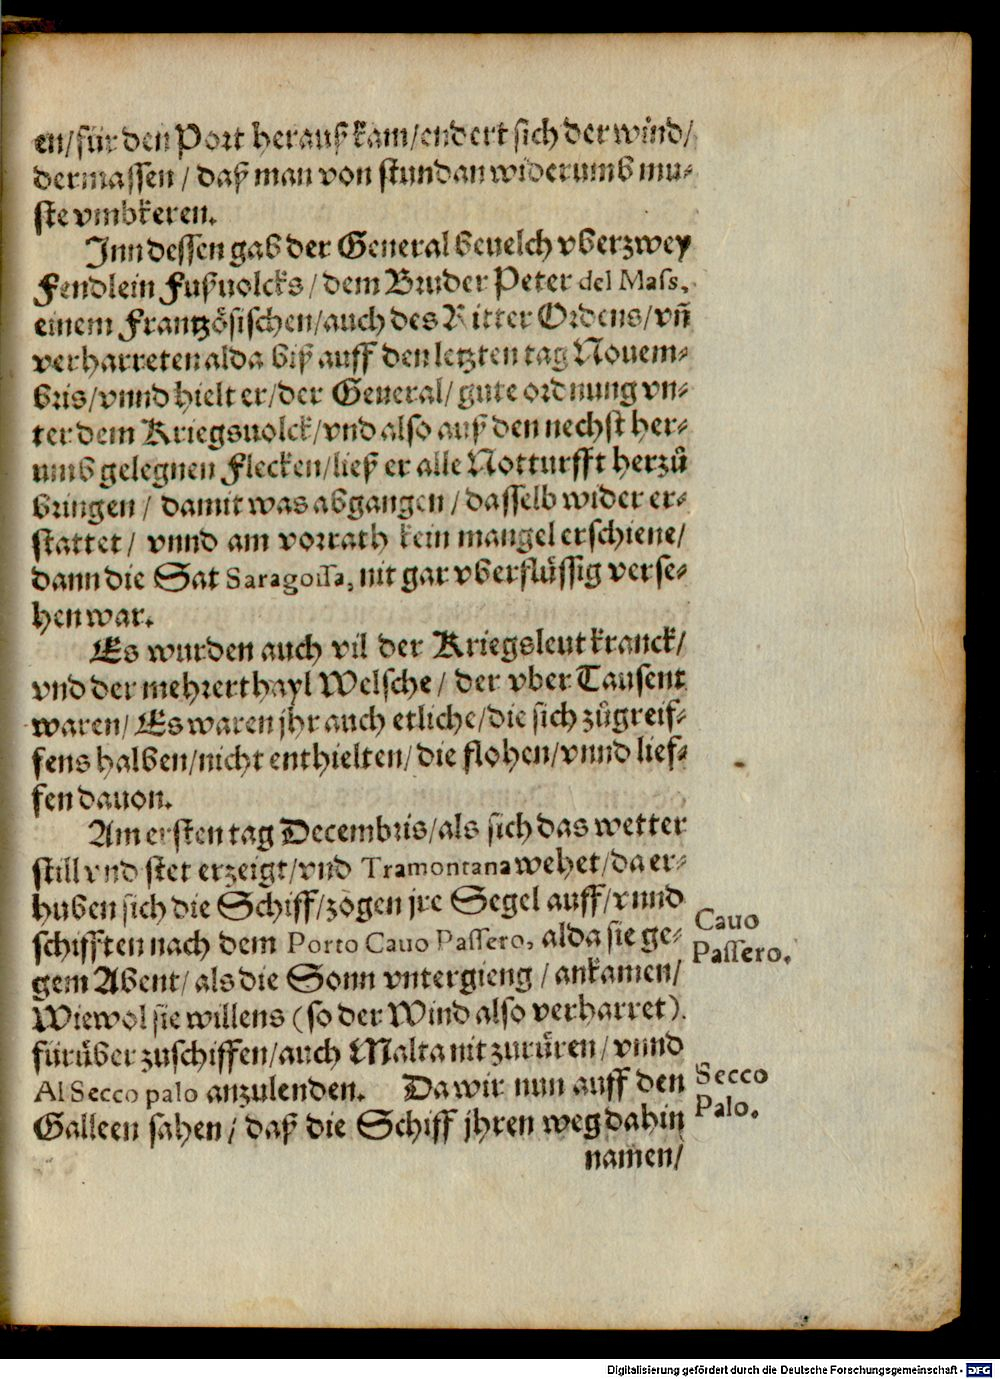 en/für den Port herauß kam/endert sich der wind/
dermassen / daß man von stund an widerumb mu-
ste vmbkeren.
Inn dessen gab der General beuelch vber zwey
Fendlein Fußuolcks / dem Bruder Peter del Mass,
einem Frantzösischen/auch des Ritter Ordens/vñ
verharreten alda biß auff den letzten tag Nouem-
bris/vnnd hielt er/der General/ gute ordnung vn-
ter dem Kriegsuolck/vnd also auß den nechst her-
umb gelegnen Flecken/ließ er alle Notturfft herzů
bringen / damit was abgangen / dasselb wider er-
stattet / vnnd am vorrath kein mangel erschiene/
dann die Sat Saragossa, nit gar vberflüssig verse-
hen war.
Es wurden auch vil der Kriegsleut kranck/
vnd der mehrerthayl Welsche / der vber Tausent
waren/ Es waren jhr auch etliche/die sich zůgreif-
fens halben/nicht enthielten/ die flohen/vnnd lief-
fen dauon.
Am ersten tag Decembris/als sich das wetter
still vnd stet erzeigt/vnd Tramontana wehet/da er-
huben sich die Schiff/zogen jre Segel auff/vnnd
schifften nach dem Porto Cauo Passero, alda sie ge-
gem Abent/ als die Sonn vntergieng / ankamen/
Wiewol sie willens (so der Wind also verharret)
fürüber zuschiffen/auch Malta nit zurüren/vnnd
Al Secco palo anzulenden. Da wir nun auff den
Galleen sahen / daß die Schiff jhren weg dahin
namen/
Cauo
Passero.
Secco
Palo.
Digitalisierung gefördert durch die Deutsche Forschungsgemeinschaft - DFG